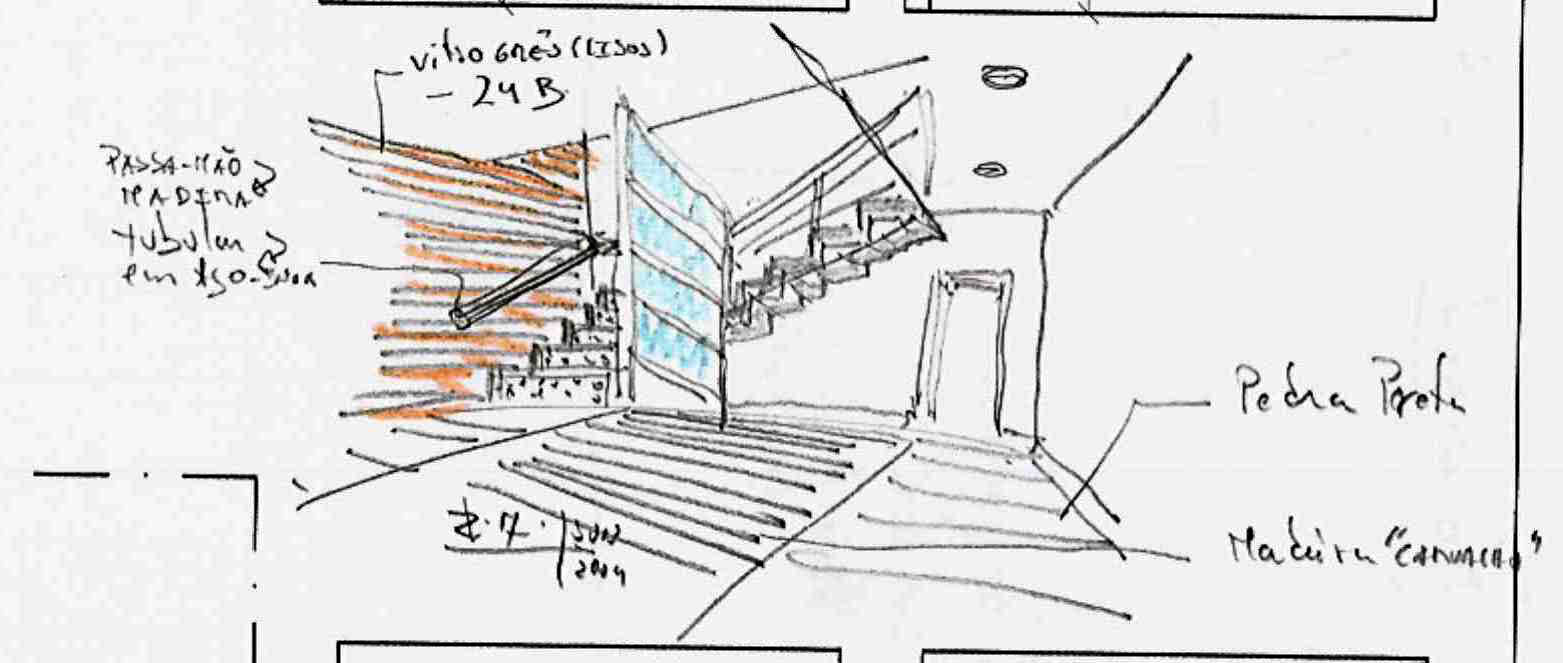 vitro grés (LISOS)
- 24 B
PASSA-MÃO
MADEIRA
tubular
em
Pedra Preta
Madeira "CARVALHO"
2004